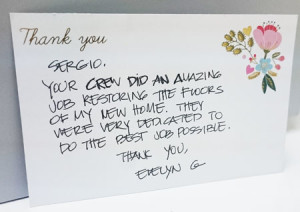 Thank you
SERGIO,
YOUR CREW DID AN AMAZING
JOB RESTORING THE FLOORS
OF MY NEW HOME. THEY
WERE VERY DEDICATED TO
DO THE BEST JOB POSSIBLE.
THANK YOU,
EVELYN G